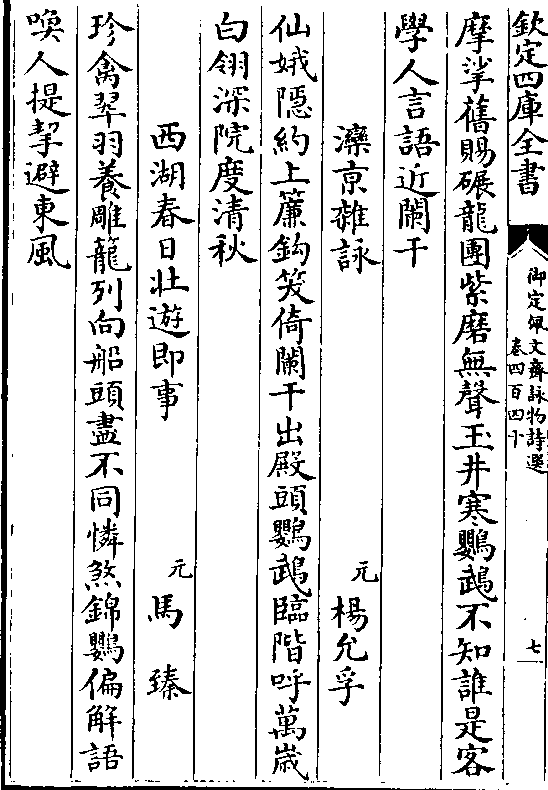 欽定四庫全書
御定佩文齋詠物詩選
卷四百四十
七
摩挲舊賜碾龍團紫磨無聲玉井寒鸚鵡不知誰是客
學人言語近闌干
灤京雜詠
元
楊允孚
仙娥隱約上簾鈎笑倚闌干出殿頭鸚鵡臨階呼萬歲
白翎深院度清秋
西湖春日壯遊即事
元
馬臻
珍禽翠羽養雕籠列向船頭盡不同憐煞錦鸚偏解語
喚人提挈避東風